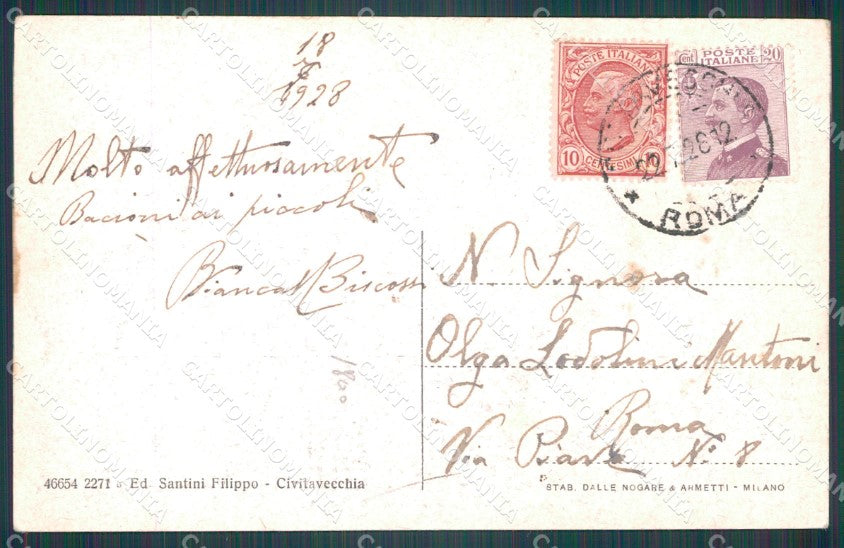 18
7
1928
Molto affettuosamente
Bacioni ai piccoli
Bianca Biscossi
POSTE ITALIANE
10 CENTESIMI 10
POSTE 20
ITALIANE
22.7.28 12
* ROMA
N. Signora
Olga Lodolini Mantoni
Roma
Via Piave N° 8
1800
46654 2271 - Ed. Santini Filippo - Civitavecchia
STAB. DALLE NOGARE & ARMETTI - MILANO
CARTOLINOMANIA